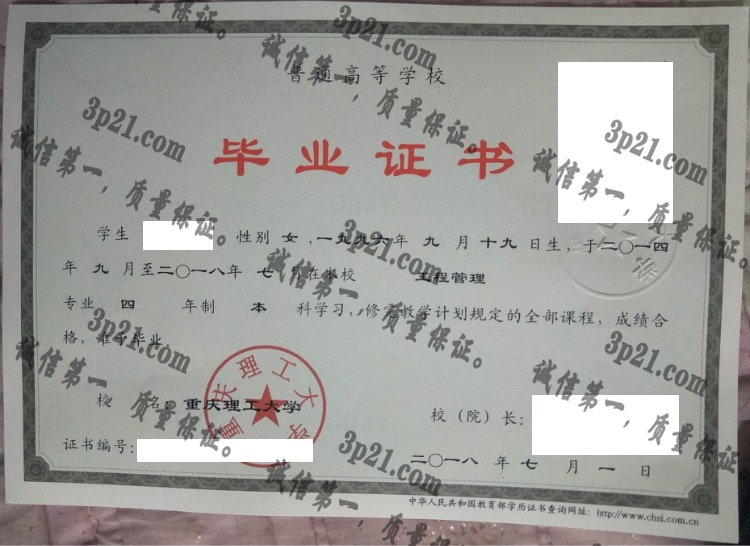 普通高等学校
毕业证书
学生 性别 女,一九九六年 九 月 十九 日生,于二〇一四
年 九 月至二〇一八年 七 月在本校 工程管理
专业 四 年制 本 科学习,修完教学计划规定的全部课程,成绩合
格,准予毕业。
校 名:重庆理工大学
校(院)长:
证书编号:
二〇一八 年 七 月 一 日
中华人民共和国教育部学历证书查询网址:http://www.chsi.com.cn
重庆理工大学
3p21.com
诚信第一,质量保证。
3p21.com
诚信第一,质量保证。
3p21.com
诚信第一,质量保证。
3p21.com
诚信第一,质量保证。
3p21.com
诚信第一,质量保证。
3p21.com
诚信第一,质量保证。
3p21.com
诚信第一,质量保证。